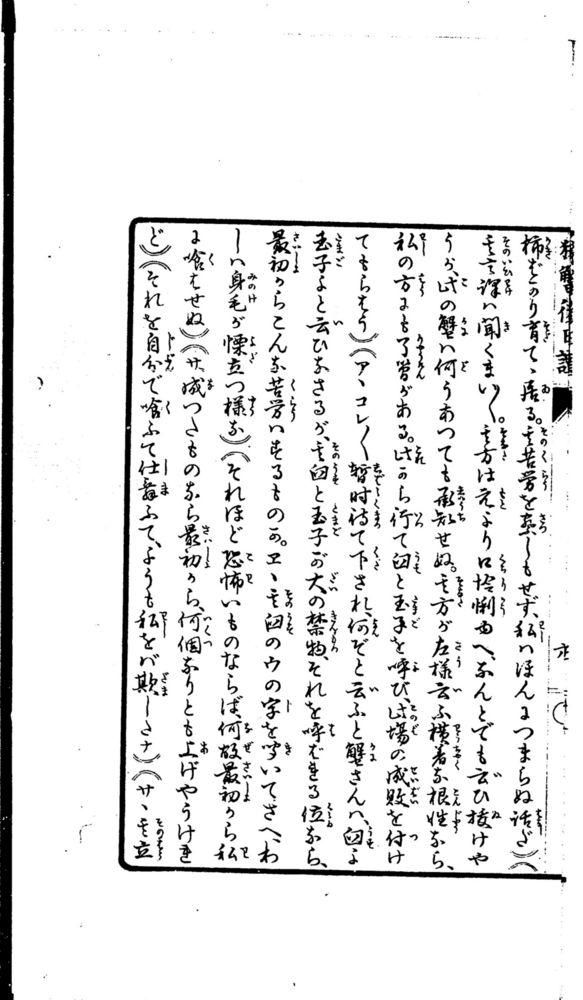 猿蟹後日譚
柿ばかり育てゝ居る。其苦労を察しもせず、私はほんにつまらぬ話だ)(
其言譯は聞くまい〳〵。其方は元より口怜悧ゆへ、なんとでも云ひ抜けや
うが、此の蟹は何うあつても承知せぬ。其方が左様云ふ横着な根性なら、
私の方にも了簡がある。此から行て臼と玉子を呼び此場の成敗を付け
てもらはう)(アヽコレ〳〵暫時待て下され、何ぞと云ふと蟹さんは、臼よ
玉子よと云ひなさるが、其臼と玉子が大の禁物、それを呼ばれる位なら、
最初からこんな苦労はするものか。ヱヽ其臼のウの字を聞いてさへ、わ
しは身毛が慄立つ様な)(それほど恐怖いものならば、何故最初から私
に喰はせぬ)(サ、成つたものなら最初から、何個なりとも上げやうけれ
ど)(それを自分で喰ふて仕舞ふて、ようも私をば欺したナ)(サヽ其立